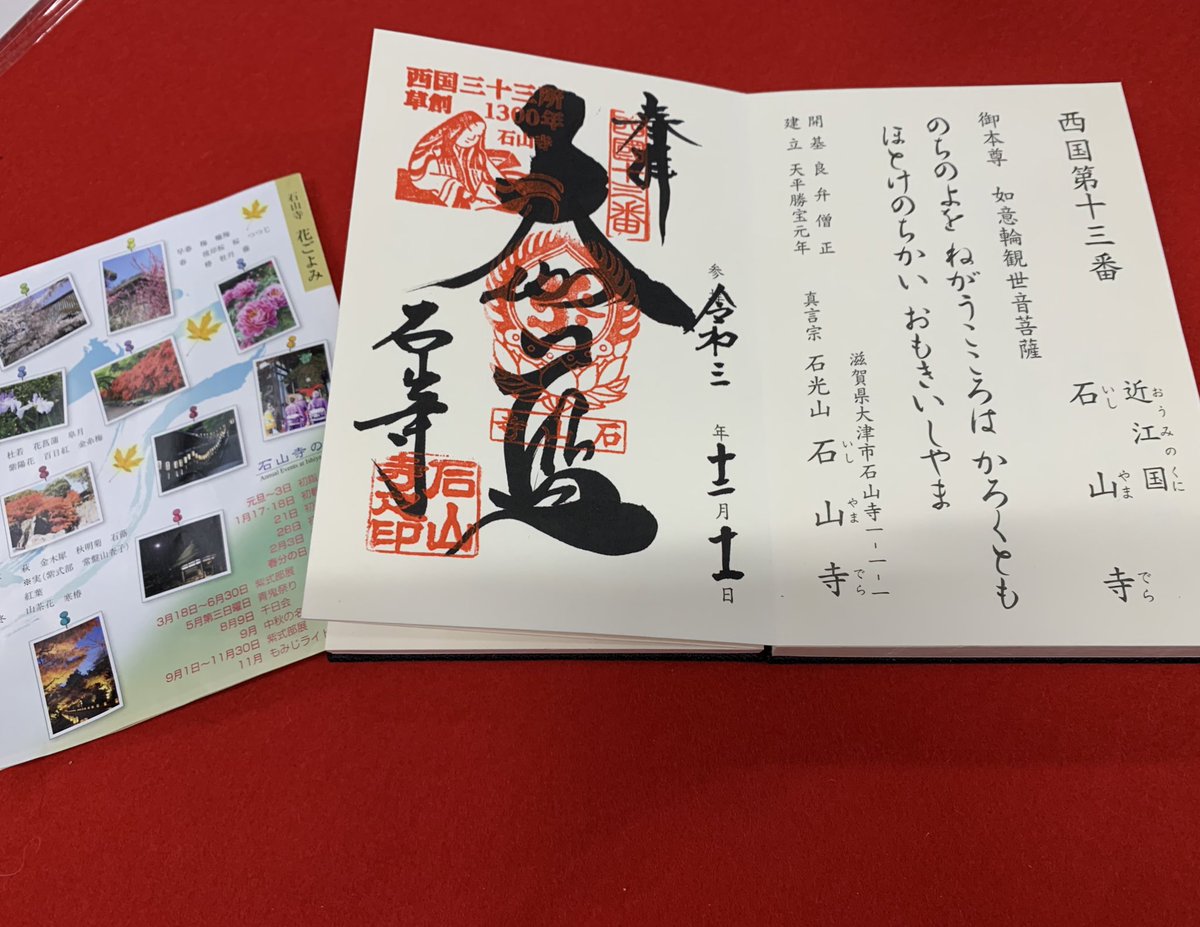 西国第十三番
近江国
おうみのくに
石山寺
いしやまでら
御本尊 如意輪観世音菩薩
のちのよを ねがうこころは かろくとも
ほとけのちかい おもきいしやま
滋賀県大津市石山寺一-一-一
開基 良弁僧正
建立 天平勝宝元年
真言宗 石光山 石山寺
いしやまでら
参拝 令和三年 月 日
奉拝
西国十三番
大伽藍
石山寺
石山寺
西国三十三所
草創 1300年
石山寺
石山寺之印
石山寺 花ごよみ
早春 梅
春 桜 つつじ
椿 牡丹 藤
杜若 花菖蒲 皐月
紫陽花 百日紅 金糸梅
萩 金木犀 秋明菊 石蕗
実(紫式部 常盤山査子)
紅葉
山茶花 寒椿
石山寺の
Annual Events at Ishiy
元旦〜3日 初
1月17・18日 初
21日 初
28日
2月3日
春分の日
3月18日〜6月30日 紫式部展
5月第三日曜日 青鬼祭り
8月9日 千日会
9月 中秋の名
9月1日〜11月30日 紫式部展
11月 もみじライト